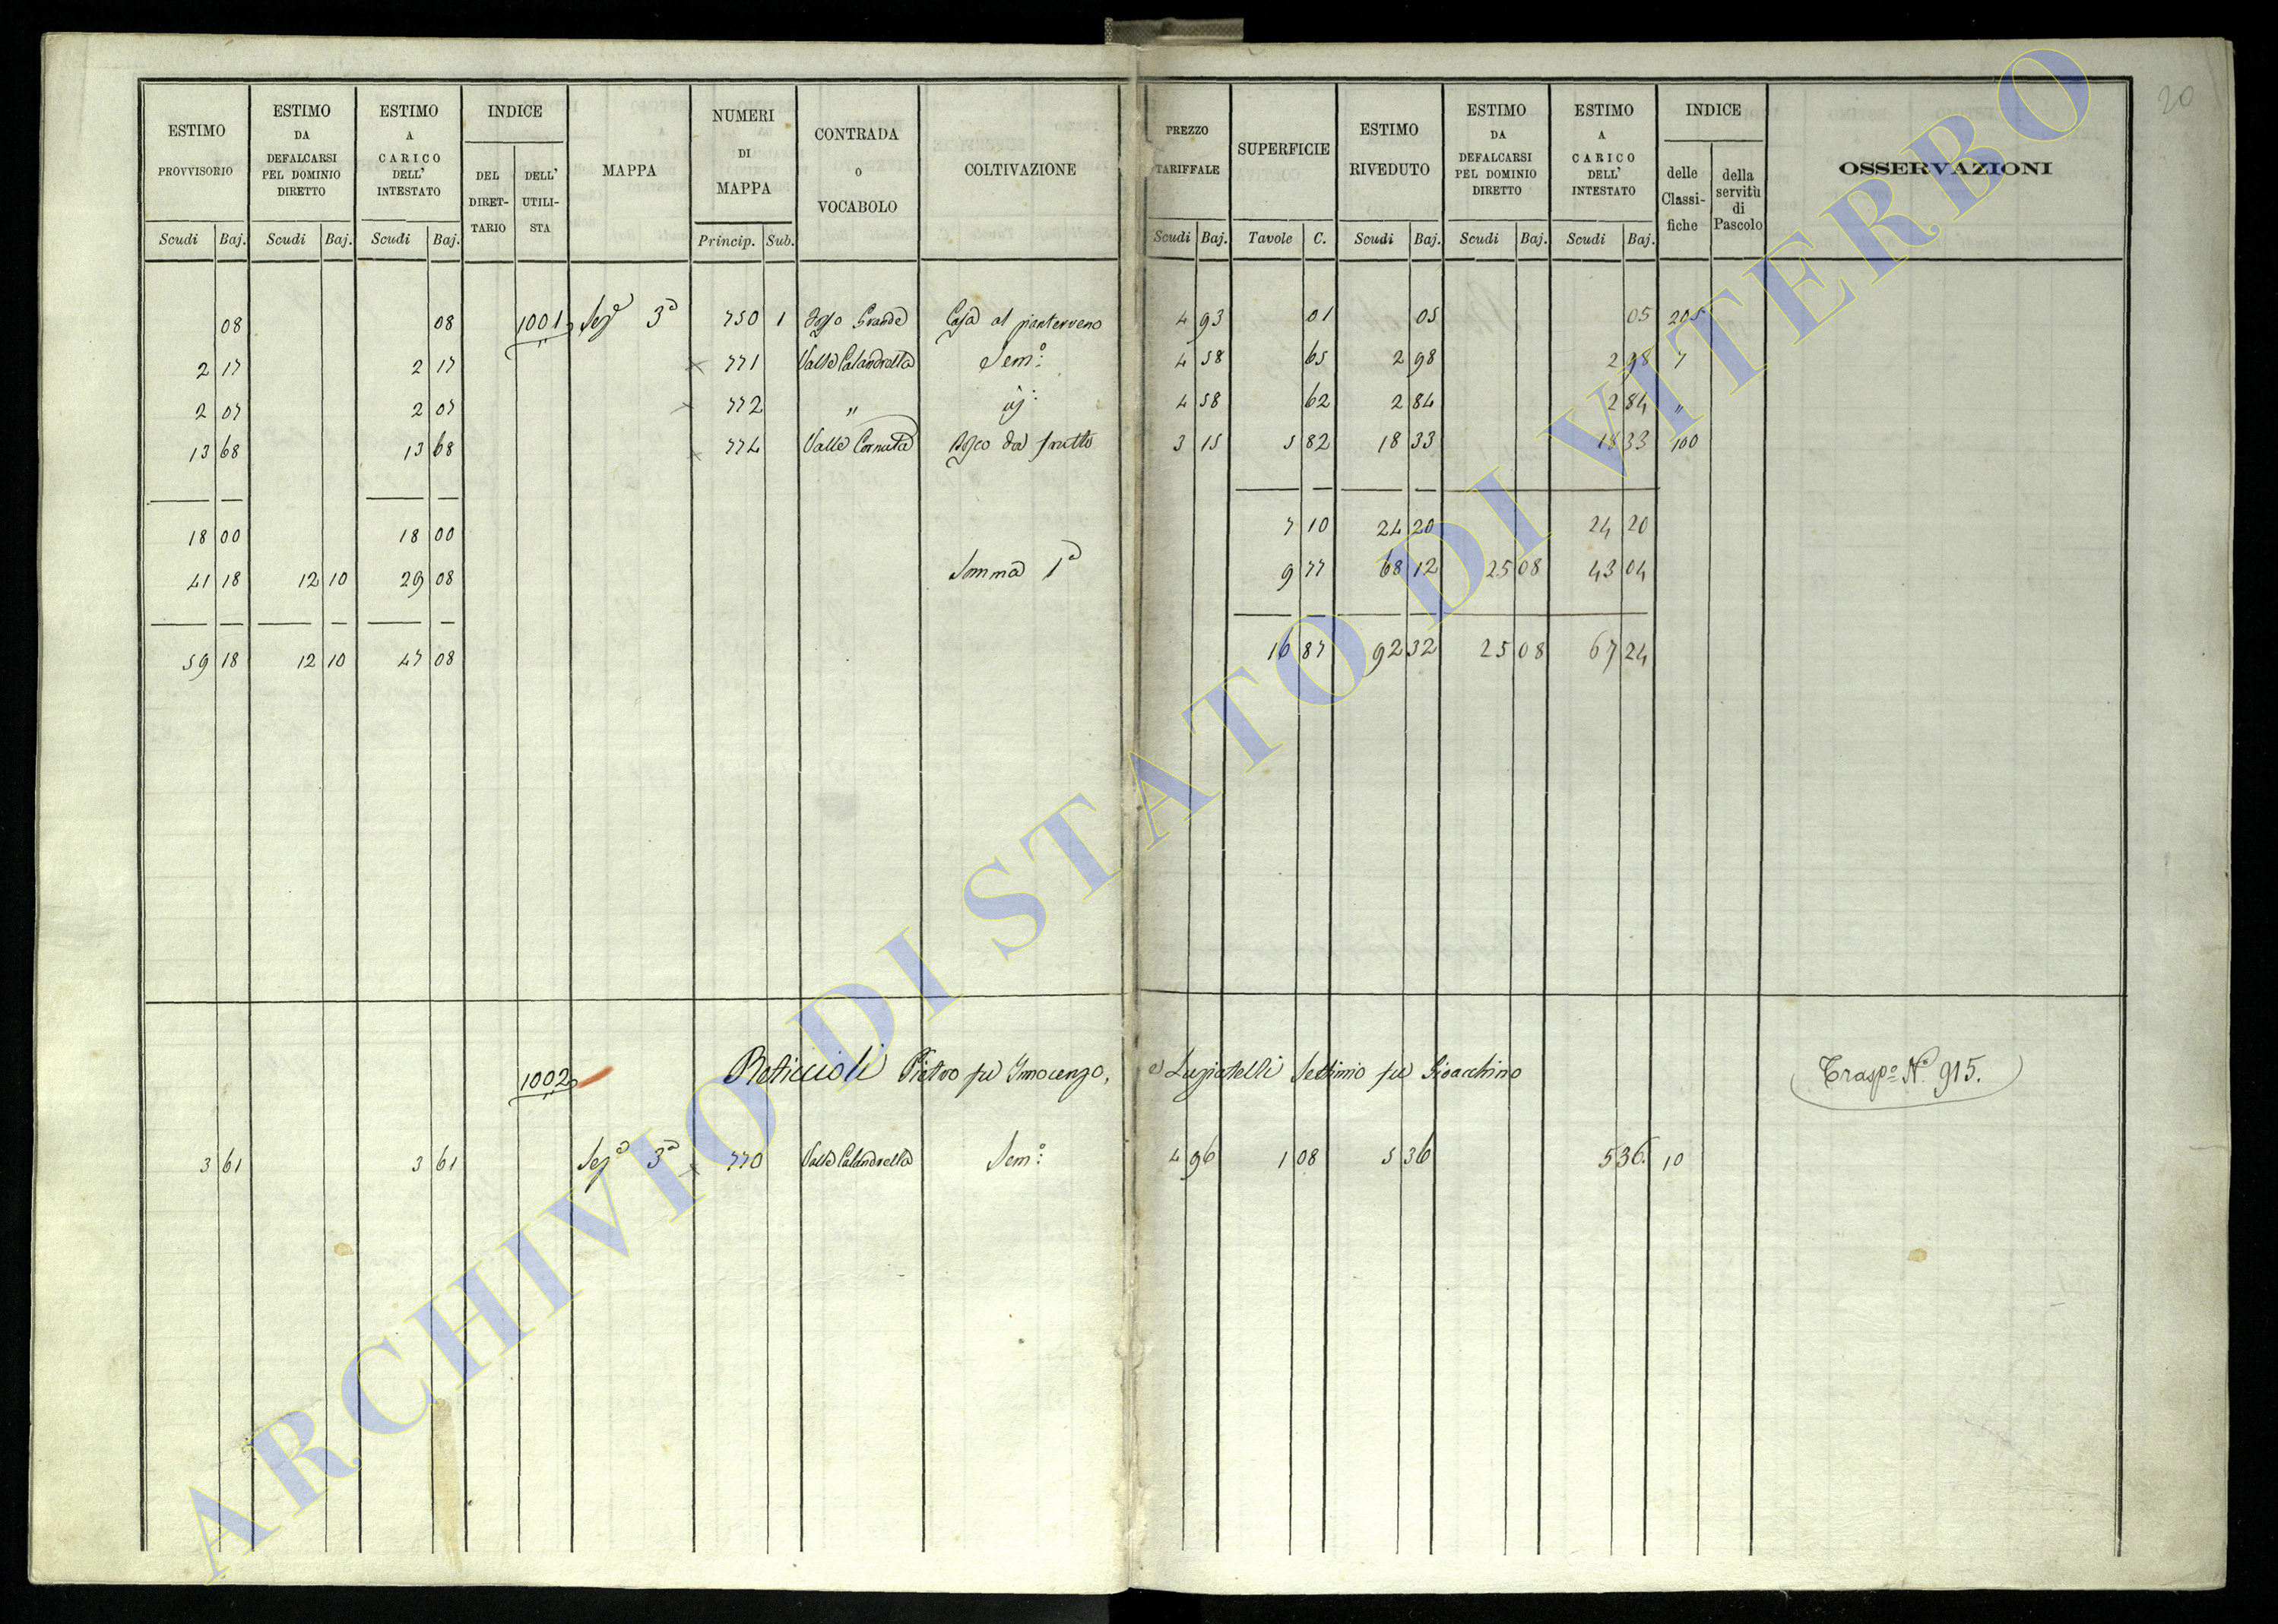 20
ESTIMO PROVVISORIO Scudi Baj. ESTIMO DA DEFALCARSI PEL DOMINIO DIRETTO Scudi Baj. ESTIMO A CARICO DELL' INTESTATO Scudi Baj. INDICE DEL DIRET-TARIO DELL' UTILI-STA MAPPA NUMERI DI MAPPA Princip. Sub. CONTRADA O VOCABOLO COLTIVAZIONE PREZZO TARIFFALE Scudi Baj. SUPERFICIE Tavole C. ESTIMO RIVEDUTO Scudi Baj. ESTIMO DA DEFALCARSI PEL DOMINIO DIRETTO Scudi Baj. ESTIMO A CARICO DELL' INTESTATO Scudi Baj. INDICE delle Classi-fiche della servitù di Pascolo OSSERVAZIONI
08 08 1001 Sezᵉ 3ᵃ 750 1 Grande Casa al pianterreno 4 93 01 05 05 205
2 17 2 17 771 Valle Calandrella Sem.º 4 58 65 2 98 2 98 7
2 07 2 07 772 " id. 4 58 62 2 84 2 84 "
13 68 13 68 774 Valle Cornuta Bosco da frutto 3 15 5 82 18 33 18 33 100
18 00 18 00 7 10 24 20 24 20
41 18 12 10 29 08 Somma 1ᵃ 9 77 68 12 25 08 43 04
59 18 12 10 47 08 16 87 92 32 25 08 67 24
1002 Reticcioli Pietro fu Innocenzo, e Lugiatelli Settimio fu Gioacchino Traspº Nº 915.
3 61 3 61 Sezᵉ 3ᵃ 770 Valle Calandrella Sem.º 4 96 1 08 5 36 5 36 10
ARCHIVIO DI STATO DI VITERBO